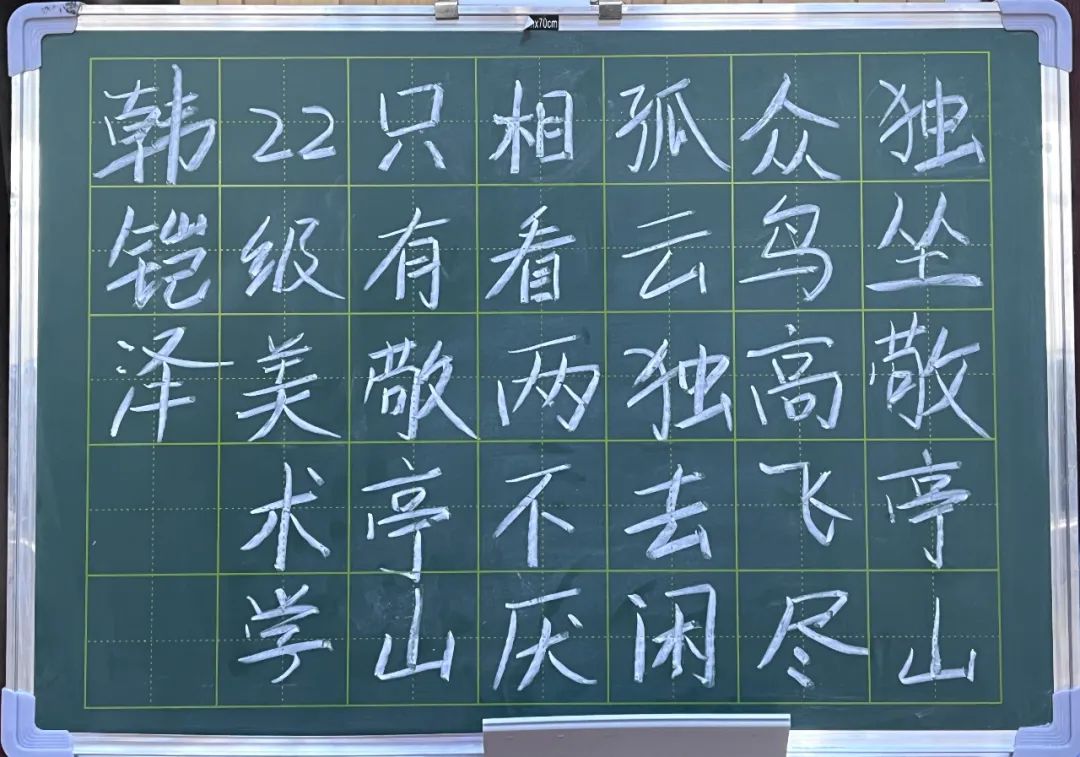 x70cm
独坐敬亭山
众鸟高飞尽
孤云独去闲
相看两不厌
只有敬亭山
22级美术学
韩铠泽